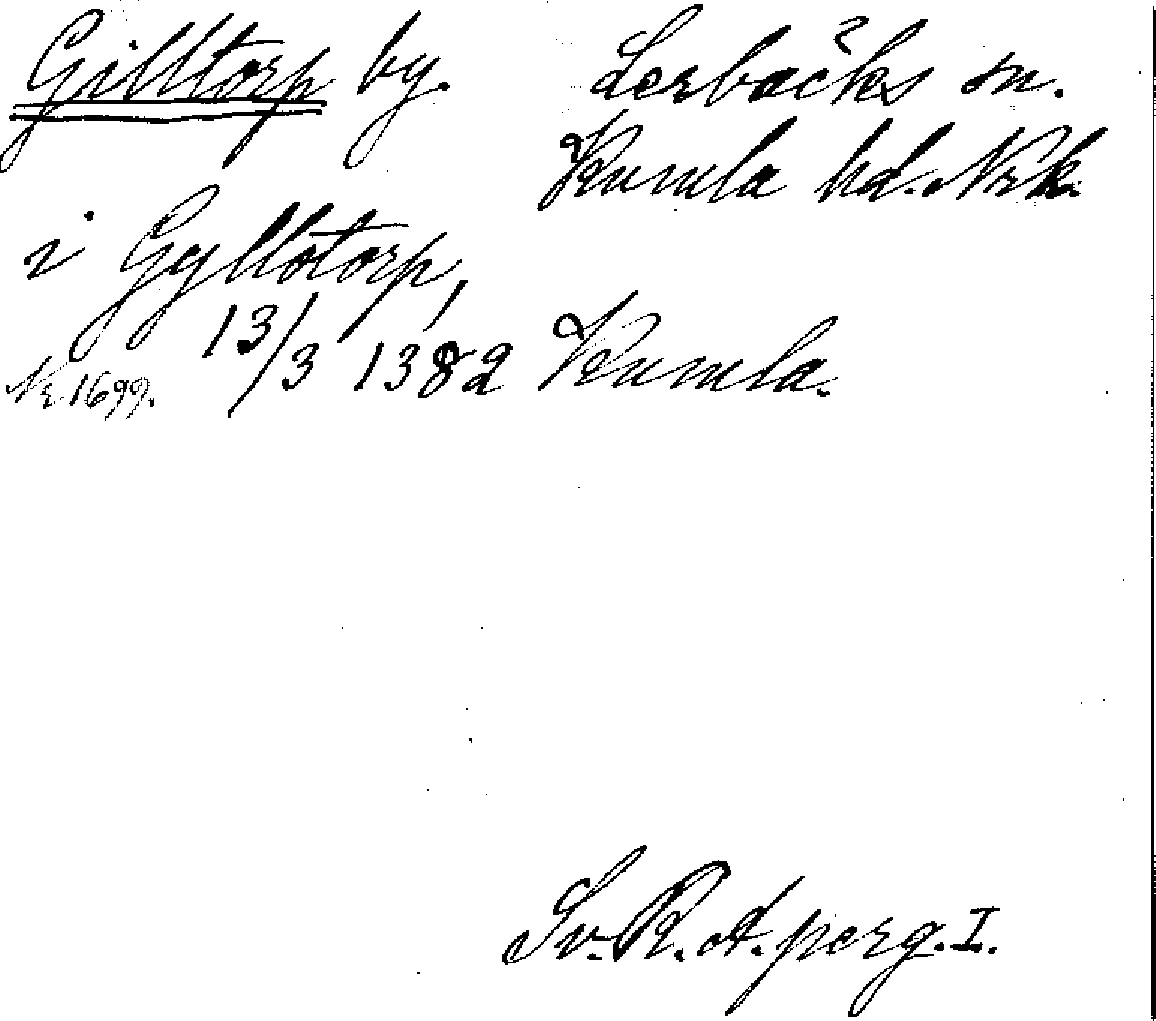 Gilltorp by. Lerbäcks sn.
Kumla hd. Nrk.
i Gyllotorp,
13/3 1382 Kumla.
Nr. 1699.
Sv. R. A. perg. I.